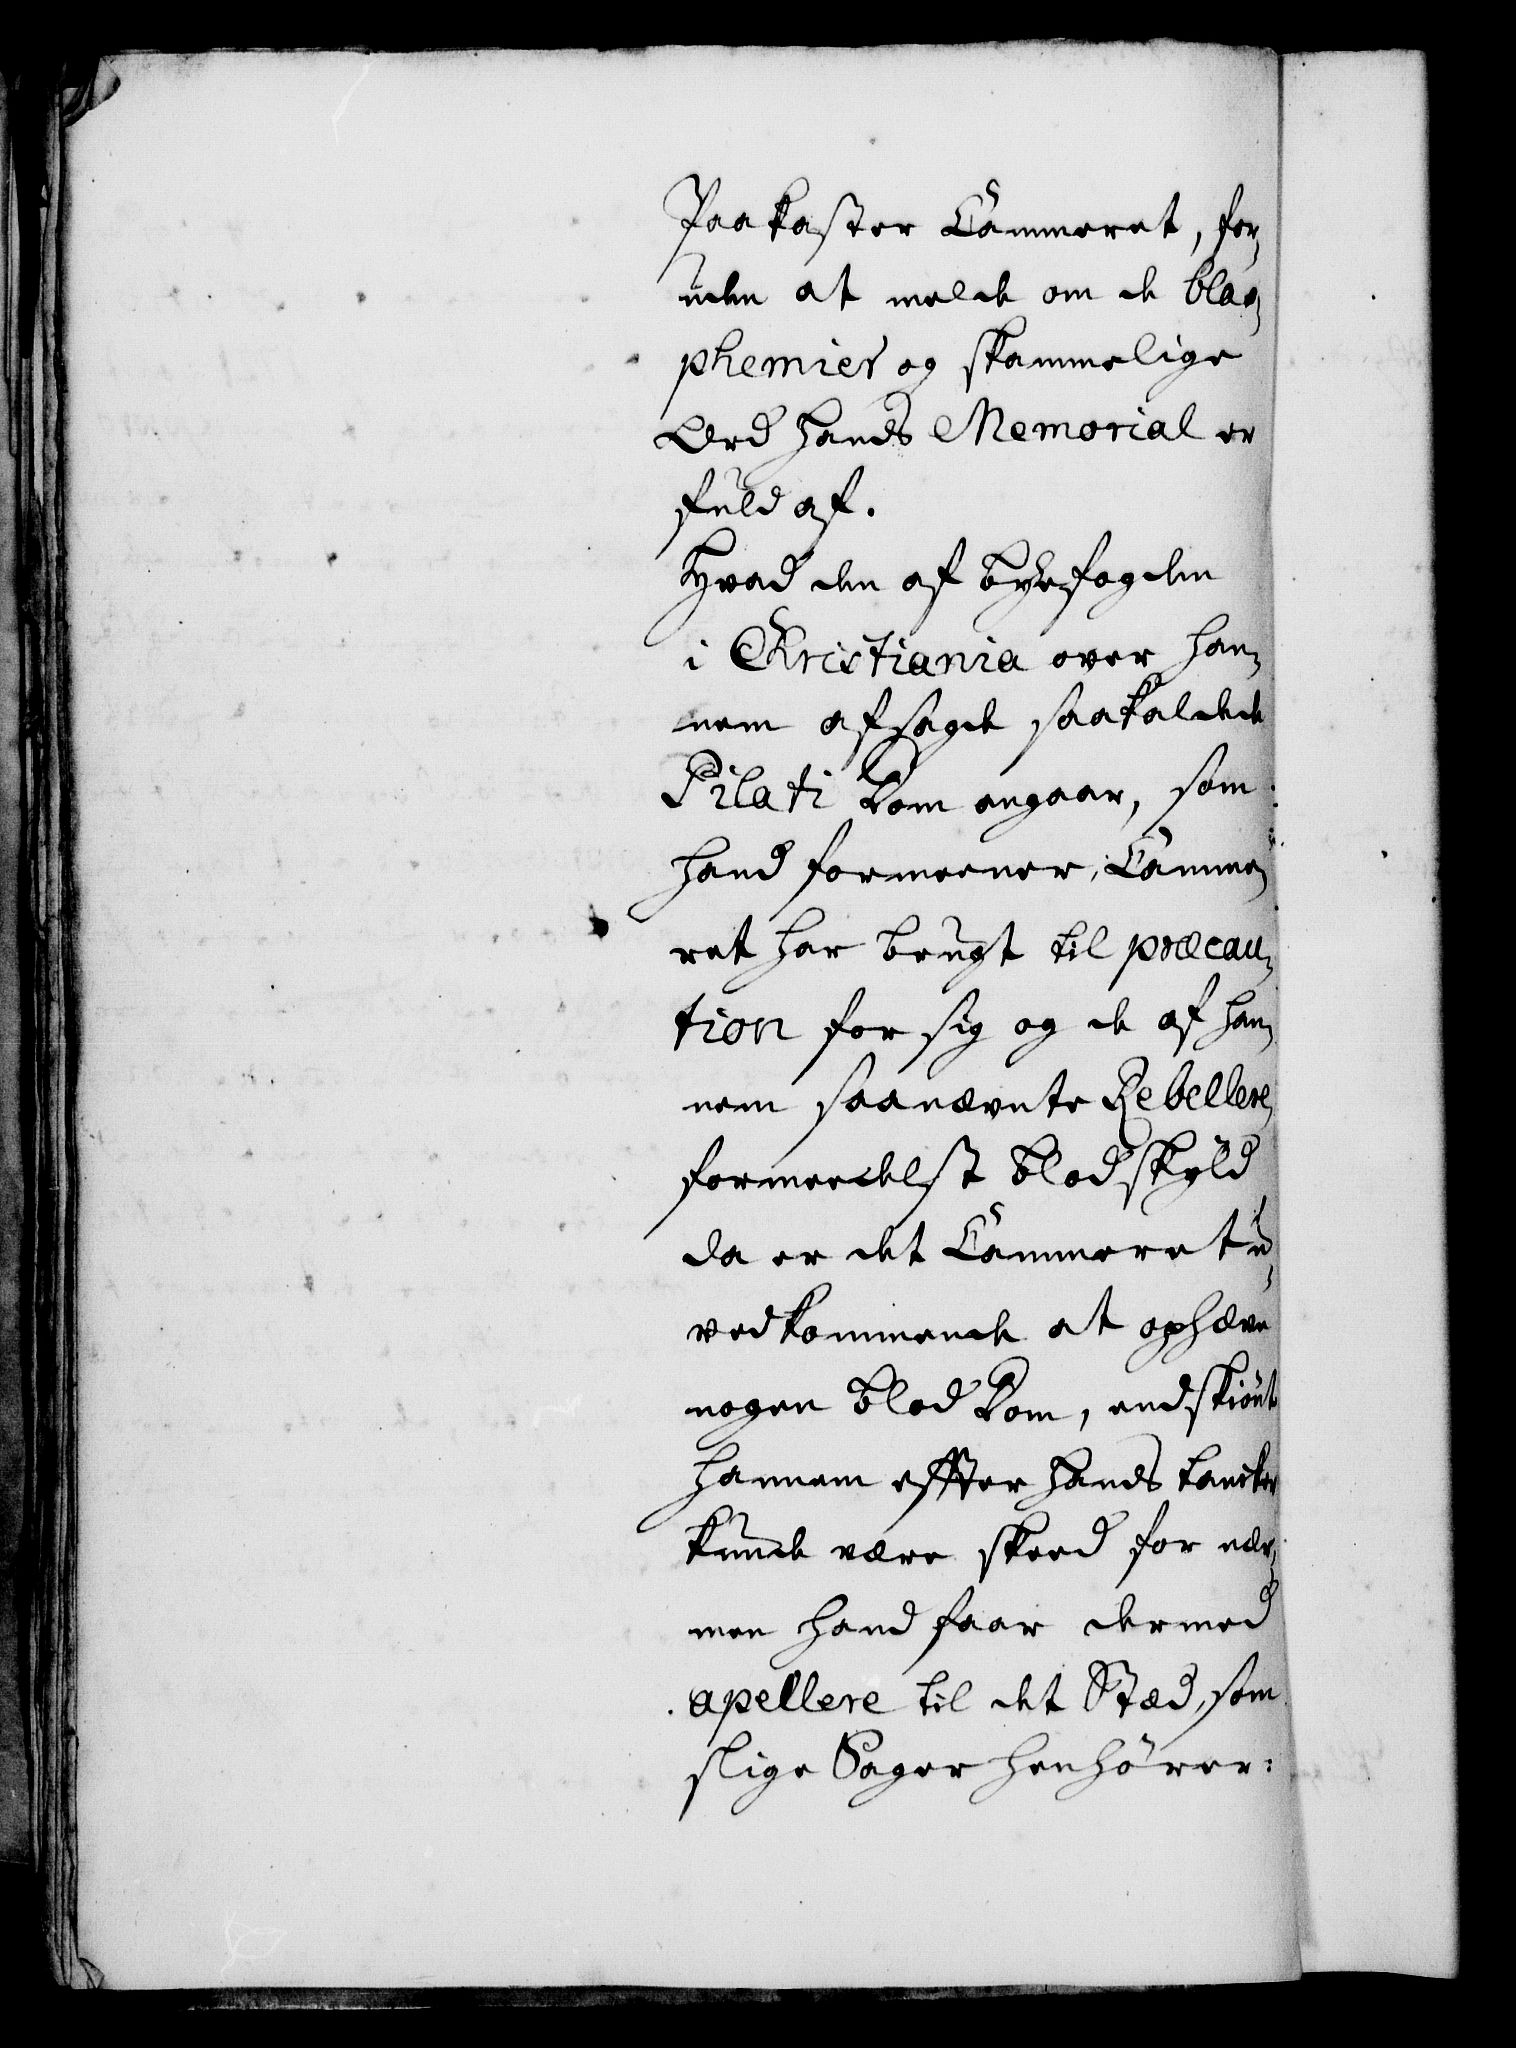 Paakaster Cammeret, for-
uden at melde om de blas-
phemier og skammelige
Ord hands Memorial er
fuld af.
Hvad den af byefogden
i Christiania over han-
nem afsagde saakaldede
Pilati Dom angaar, som
hand formeener, Camme-
ret har brugt til præcau-
tion for sig og de af han-
nem saanævnte Rebellere
formeedelst blodskyld
da er det Cammeret u-
vedkommende at ophæve
nogen blod Dom, endskiönt
hannem effter hands tancker
kunde være skeed for nær,
men hand faar dermed
apellere til det Stæd, som
slige Sager henhörer: